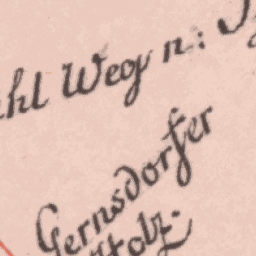 Weg n:
Gernsdorfer
Holz.